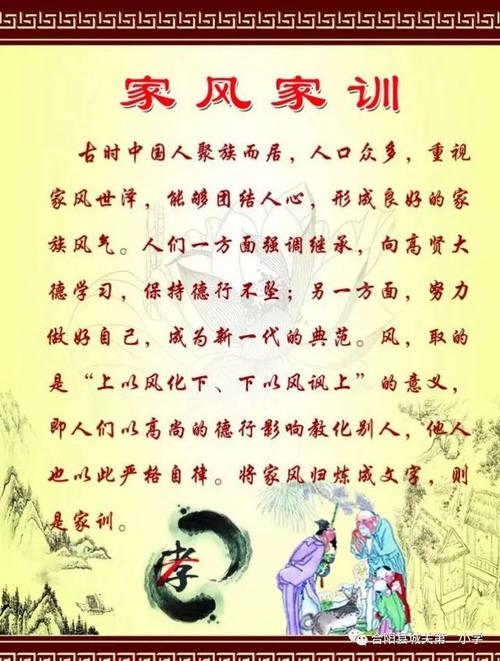 家风家训
古时中国人聚族而居，人口众多，重视
家风世泽，能够团结人心，形成良好的家
族风气。人们一方面强调继承，向高贤大
德学习，保持德行不坠；另一方面，努力
做好自己，成为新一代的典范。风，取的
是“上以风化下、下以风讽上”的意义，
即人们以高尚的德行影响教化别人，他人
也以此严格自律。将家风归炼成文字，则
是家训。
孝
合阳县城关第二小学